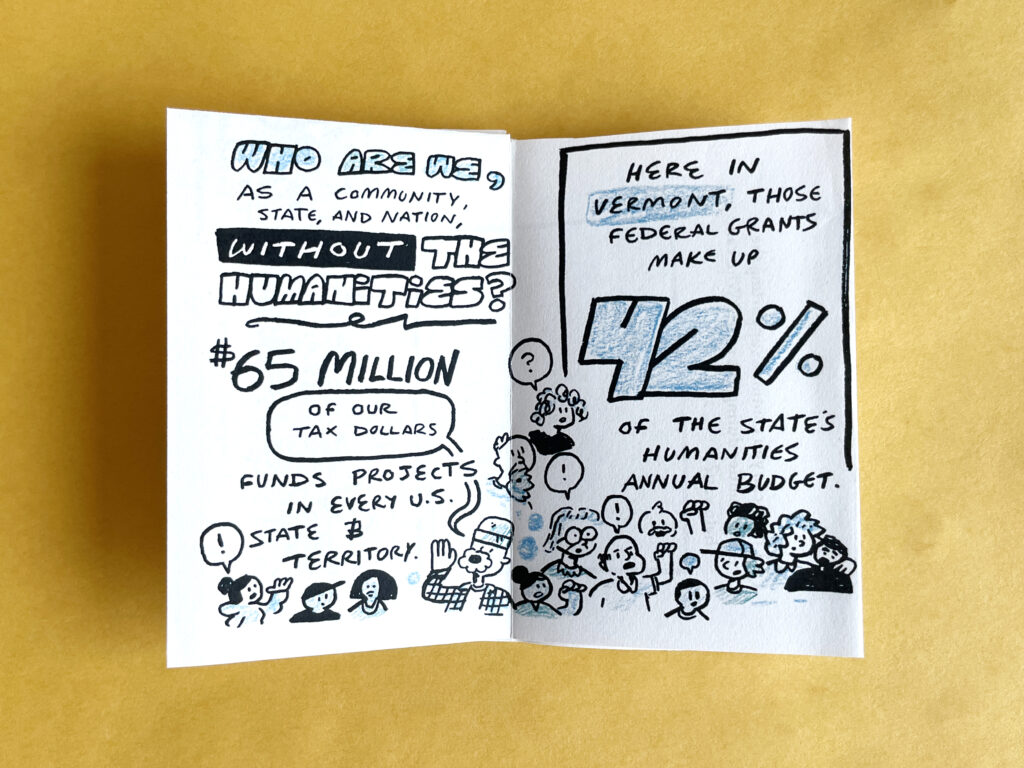 WHO ARE WE,
AS A COMMUNITY,
STATE, AND NATION,
WITHOUT THE
HUMANITIES?
$65 MILLION
OF OUR
TAX DOLLARS
FUNDS PROJECTS
IN EVERY U.S.
STATE &
TERRITORY.
!
HERE IN
VERMONT, THOSE
FEDERAL GRANTS
MAKE UP
42%
OF THE STATE'S
HUMANITIES
ANNUAL BUDGET.
?
!
!